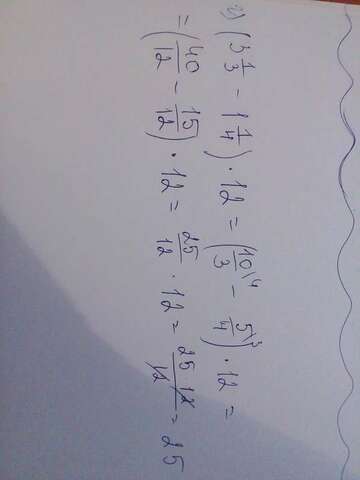 г) (3 1/3 - 1 1/4) · 12 = (10\4/3 - 5\3/4) · 12 =
= (40/12 - 15/12) · 12 = 25/12 · 12 = 25 · 12/12 = 25